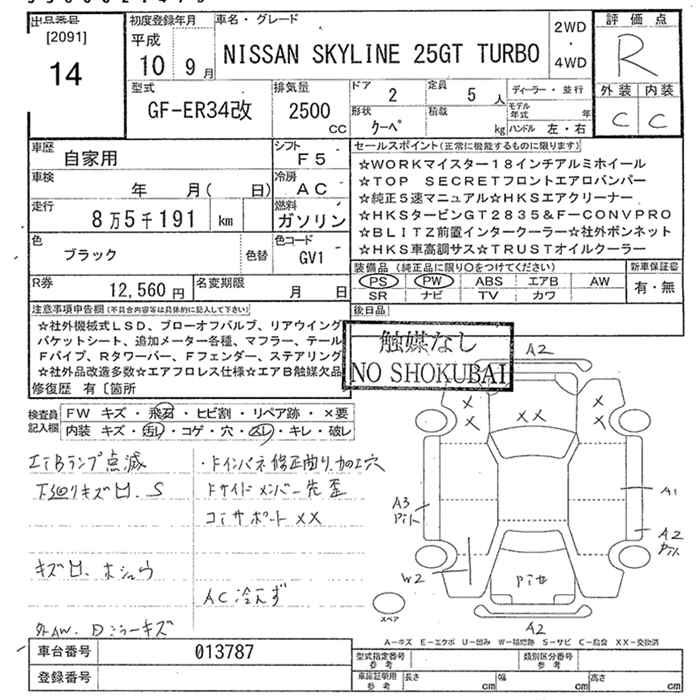 出品番号
[2091]
14
初度登録年月
平成
10 9月
車名・グレード
NISSAN SKYLINE 25GT TURBO
2WD
・
4WD
評価点
R
外装 内装
C C
型式
GF-ER34改
排気量
2500
CC
ドア
2
定員
5 人
ディーラー・並行
モデル年式 年
形状
クーペ
積載
kg
ハンドル 左・右
車歴
自家用
シフト
F5
車検
年 月( 日)
冷房
AC
走行
8万5千191 km
燃料
ガソリン
色
ブラック
色替
色コード
GV1
R券
12,560 円
名変期限
月 日
セールスポイント(正常に機能するものに限ります)
☆WORKマイスター18インチアルミホイール
☆TOP SECRETフロントエアロバンパー
☆純正5速マニュアル☆HKSエアクリーナー
☆HKSタービンGT2835&F-CONVPRO
☆BLITZ前置インタークーラー☆社外ボンネット
☆HKS車高調サス☆TRUSTオイルクーラー
装備品 (純正品に限り○をつけてください)
PS PW ABS エアB AW
SR ナビ TV カワ
新車保証書
有・無
後日品
注意事項申告欄(不具合内容は具体的に記入して下さい)
☆社外機械式LSD、ブローオフバルブ、リアウイング
バケットシート、追加メーター各種、マフラー、テール
Fパイプ、Rタワーバー、Fフェンダー、ステアリング
☆社外品改造多数☆エアフロレス仕様☆エアB触媒欠品
修復歴 有〔箇所
触媒なし
NO SHOKUBAI
検査員
記入欄
FW キズ・飛石・ヒビ割・リペア跡・×要
内装 キズ・汚レ・コゲ・穴・スレ・キレ・破レ
エアBランプ点滅
下廻りキズ凹.S
キズ凹 ホシュウ
外AW.
ミラーキズ
・Fインパネ修正曲り、加工穴
Fサイドメンバー先歪
コアサポート XX
AC冷えず
A2
X
X
XX
X
X
A3
A1
A2
W2
A2
スペア
A-キズ E-エクボ U-凹み W-補修跡 S-サビ C-腐食 XX-交換済
車台番号
013787
登録番号
型式指定番号
参考
類別区分番号
参考
車庫証明用
参考
長さ cm
幅 cm
高さ cm